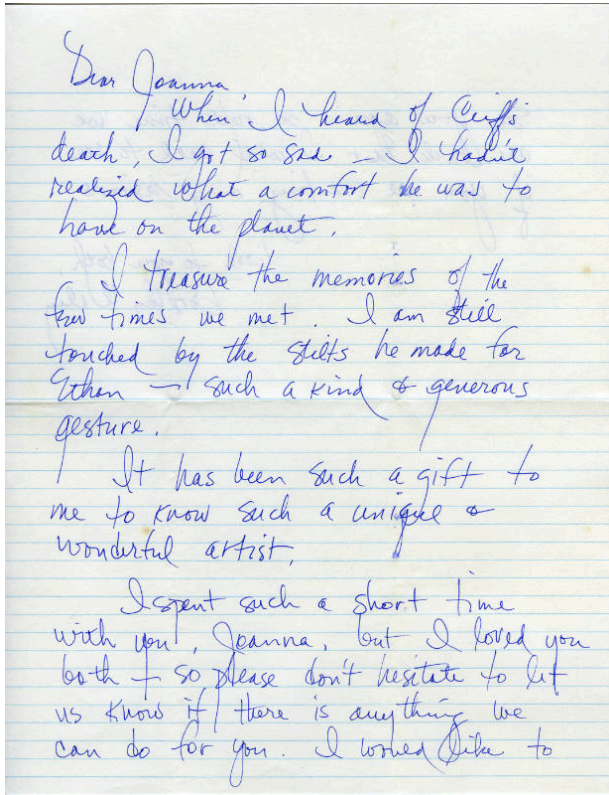 Dear Joanna,
When I heard of Cliff's
death, I got so sad — I hadn't
realized what a comfort he was to
have on the planet.
I treasure the memories of the
few times we met. I am still
touched by the stilts he made for
Ethan — such a kind & generous
gesture.
It has been such a gift to
me to know such a unique &
wonderful artist.
I spent such a short time
with you, Joanna, but I loved you
both — so please don't hesitate to let
us know if there is anything we
can do for you. I would like to